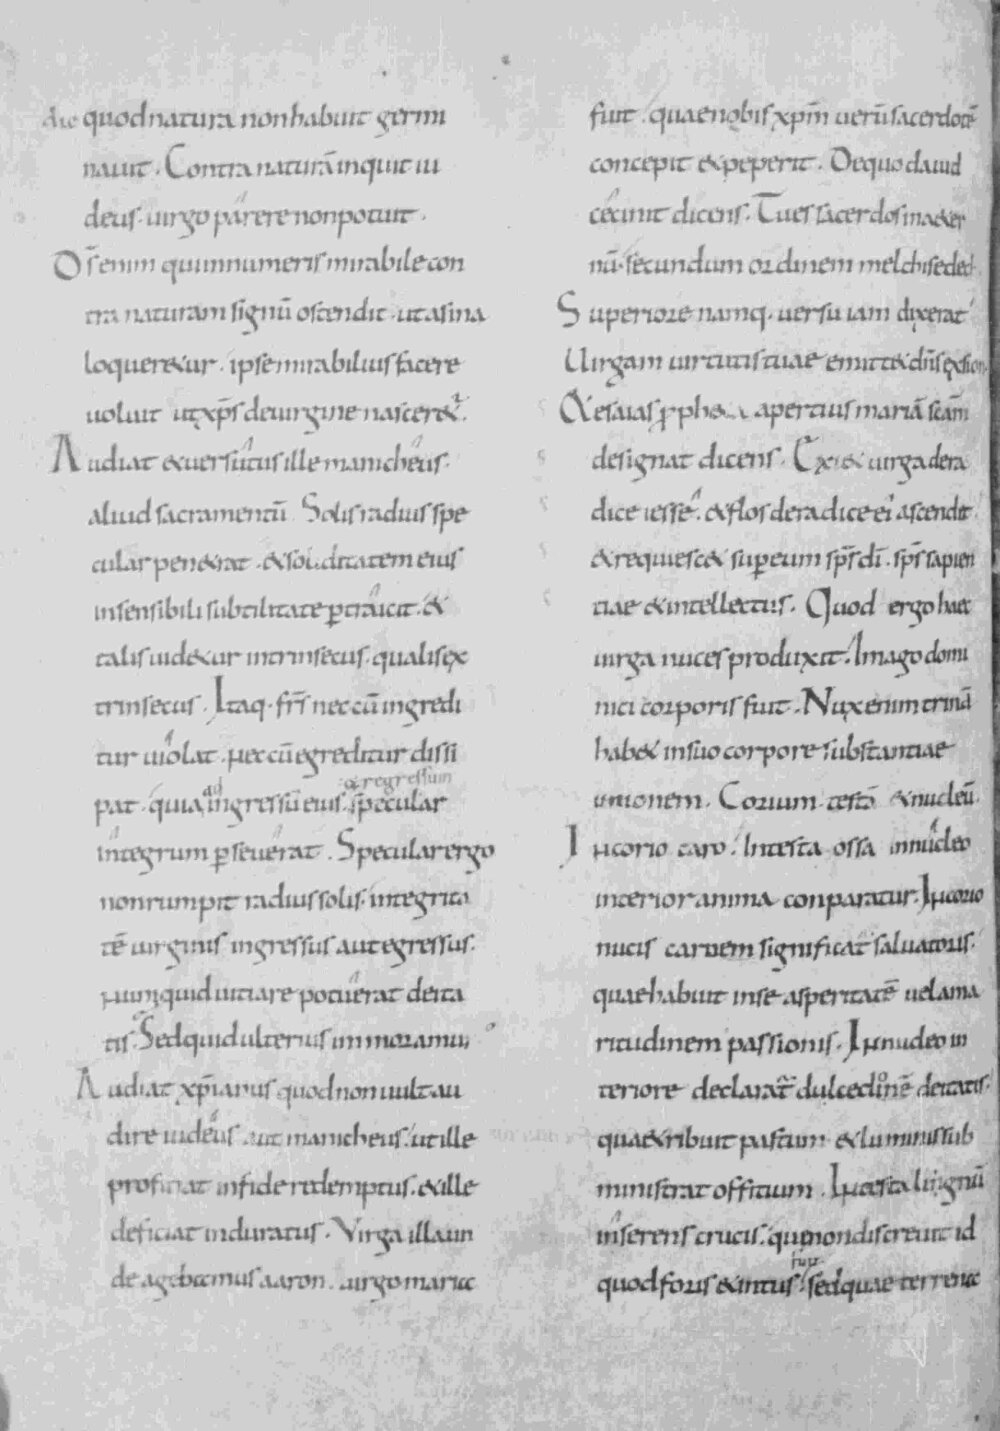 die quod natura non habuit germi
nauit . Contra naturā inquit iu
deus . uirgo parere non potuit .
Ds̄ enim qui innumeris mirabile con
tra naturam signū ostendit . ut asina
loqueretur . ipse mirabilius facere
uoluit ut xp̄s de uirgine nasceret̄ .
Audiat & uersutus ille manicheus .
aliud sacramentū Solis radius spe
cular penetrat . & soliditatem eius
insensibili subtilitate ptraicit . &
talis uidetur intrinsecus . qualis ex
trinsecus . Itaq . fr̄s nec cū ingredi
tur uiolat . nec cū egreditur dissi
& regressum
pat . quia ad ingressū eius . specular
integrum pseuerat . Specular ergo
non rumpit radius solis . integrita
tē uirginis ingressus aut egressus .
numquid uitiare potuerat deita
tis . Sed quid ulterius inmoramur
Audiat xp̄ianus quod non uult au
dire iudeus aut manicheus . ut ille
proficiat in fide redemptus . & ille
deficiat induratus . Virga illa un
de agebamus aaron . uirgo maria
fuit . quae nobis xpm̄ uerū sacerdotē
concepit & peperit . De quo dauid
cecinit dicens . Tu es sacerdos in aeter
nū . secundum ordinem melchisedec
Superiore namq . uersu iam dixerat
Uirgam uirtutis tuae emittet dn̄s ex sion
Et esaias propheta apertius mariā scām
designat dicens . Exiet uirga de ra
dice iesse . & flos de radice ei ascendit
& requiescet super eum sps̄ dī . sps̄ sapien
tiae & intellectus . Quod ergo haec
uirga nuces produxit . Imago domi
nici corporis fuit . Nux enim trinā
habet in suo corpore substantiae
unionem . Corium testā & nucleū
In corio caro . In testa ossa in nucleo
interior anima conparatur . In corio
nucis carnem significat saluatoris .
quae habuit in se asperitatē uel ama
ritudinem passionis . In nucleo in
teriore declarat dulcedinē deitatis .
quae tribuit pastum & luminis sub
ministrat offitium . In testa lignū
inserens crucis . qui non discreuit id
fuit
quod foris & intus . sed quae terrena